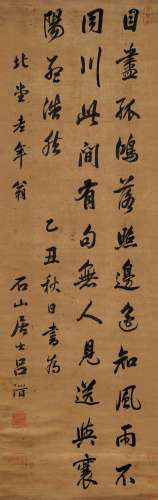 目盡孤鴻落照邊遙知風雨不
同川此間有句無人見送與襄
陽孟浩然
乙丑秋日書為
北堂老年翁
石山居士呂潛